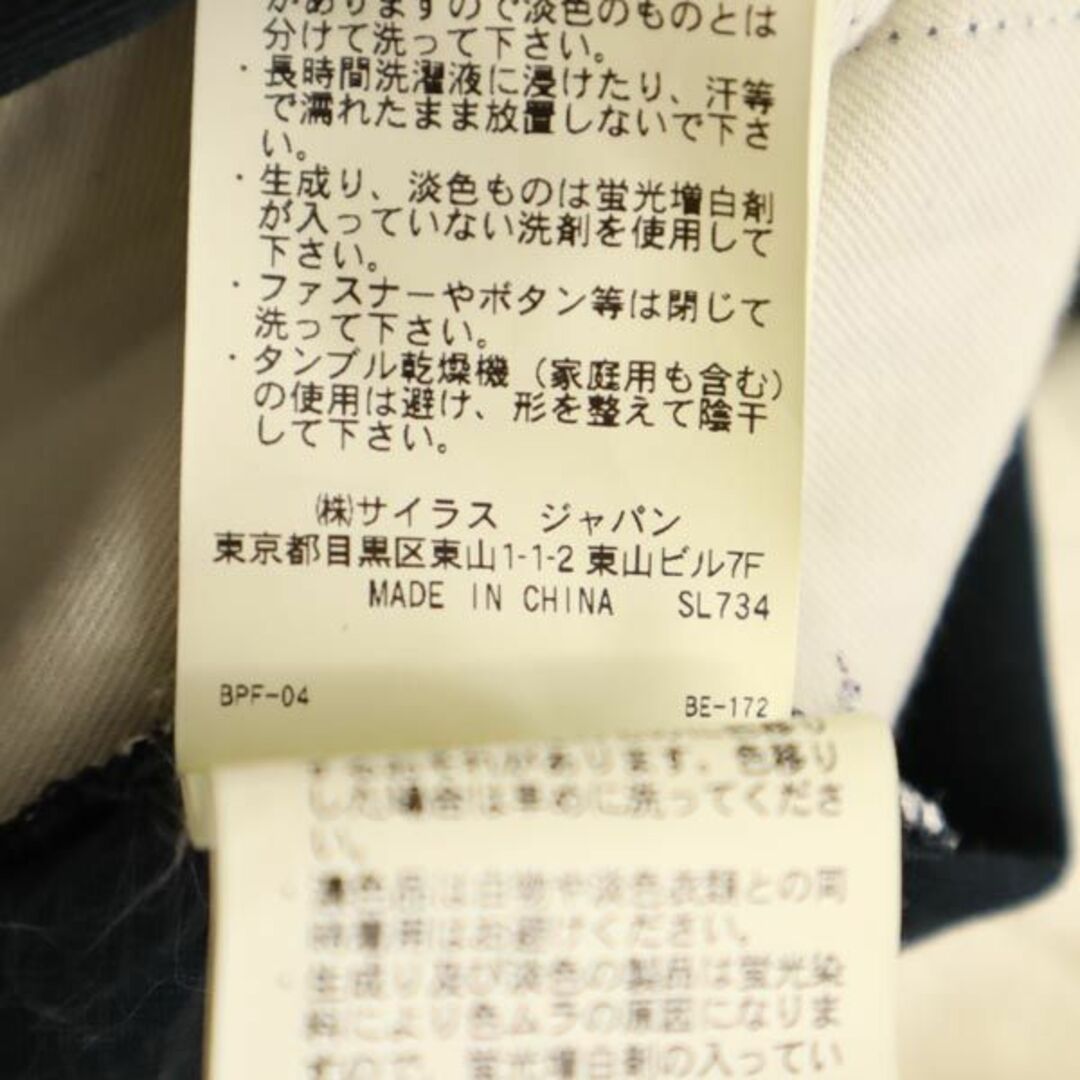 がありますので淡色のものとは
分けて洗って下さい。
・長時間洗濯液に浸けたり、汗等
で濡れたまま放置しないで下さ
い。
・生成り、淡色ものは蛍光増白剤
が入っていない洗剤を使用して
下さい。
・ファスナーやボタン等は閉じて
洗って下さい。
・タンブル乾燥機（家庭用も含む）
の使用は避け、形を整えて陰干
して下さい。
㈱サイラス ジャパン
東京都目黒区東山1-1-2 東山ビル7F
MADE IN CHINA SL734
BPF-04 BE-172
があります。色移り
した場合は早めに洗ってくださ
い。
・濃色品は白物や淡色衣類との同
はお避けください。
・生成り及び淡色の製品は蛍光染
料により色ムラの原因になりま
すので、蛍光増白剤の入ってい